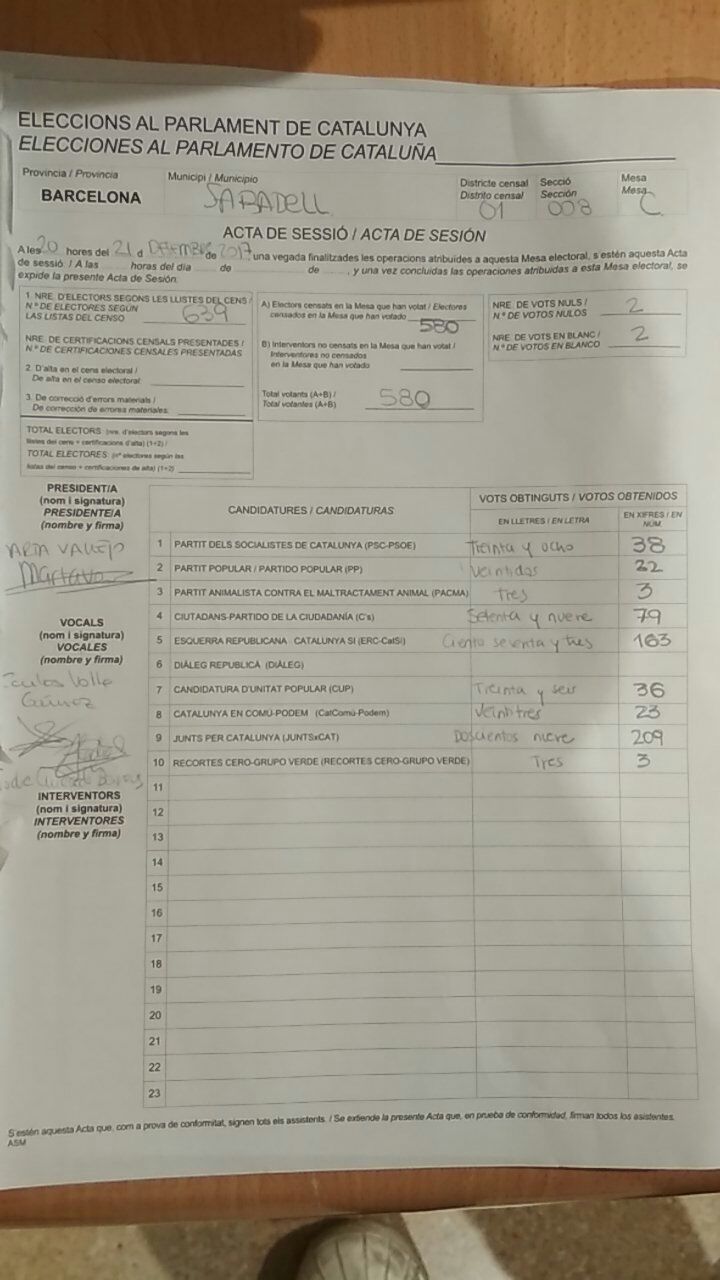 ELECCIONS AL PARLAMENT DE CATALUNYA
ELECCIONES AL PARLAMENTO DE CATALUÑA
Provincia / Provincia Municipi / Municipio Districte censal Secció Mesa
Distrito censal Sección Mesa
BARCELONA SABADELL 01 008 C
ACTA DE SESSIÓ / ACTA DE SESIÓN
A les 20 hores del 21 d DESEMBRE de 2017 una vegada finalitzades les operacions atribuides a aquesta Mesa electoral, s'estén aquesta Acta
de sessió. / A las ...... horas del día ...... de ...... de ......, y una vez concluidas las operaciones atribuidas a esta Mesa electoral, se
expide la presente Acta de Sesión.
1. NRE. D'ELECTORS SEGONS LES LLISTES DEL CENS /
N.º DE ELECTORES SEGÚN
LAS LISTAS DEL CENSO 639
NRE. DE CERTIFICACIONS CENSALS PRESENTADES /
N.º DE CERTIFICACIONES CENSALES PRESENTADAS
2. D'alta en el cens electoral /
De alta en el censo electoral:
3. De correcció d'errors materials /
De corrección de errores materiales:
TOTAL ELECTORS: (nre. d'electors segons les
llistes del cens + certificacions d'alta) (1+2) /
TOTAL ELECTORES: (nº electores según las
listas del censo + certificaciones de alta) (1+2)
A) Electors censats en la Mesa que han votat / Electores
censados en la Mesa que han votado 580
B) Interventors no censats en la Mesa que han votat /
Interventores no censados
en la Mesa que han votado
Total votants (A+B) /
Total votantes (A+B) 580
NRE. DE VOTS NULS /
N.º DE VOTOS NULOS 2
NRE. DE VOTS EN BLANC /
N.º DE VOTOS EN BLANCO 2
PRESIDENT/A
(nom i signatura)
PRESIDENTE/A
(nombre y firma)
ARTA VALLEJO
VOCALS
(nom i signatura)
VOCALES
(nombre y firma)
INTERVENTORS
(nom i signatura)
INTERVENTORES
(nombre y firma)
CANDIDATURES / CANDIDATURAS VOTS OBTINGUTS / VOTOS OBTENIDOS
EN LLETRES / EN LETRA EN XIFRES / EN NÚM.
1 PARTIT DELS SOCIALISTES DE CATALUNYA (PSC-PSOE) Treinta y ocho 38
2 PARTIT POPULAR / PARTIDO POPULAR (PP) Veintidos 22
3 PARTIT ANIMALISTA CONTRA EL MALTRACTAMENT ANIMAL (PACMA) Tres 3
4 CIUTADANS-PARTIDO DE LA CIUDADANÍA (C's) Setenta y nueve 79
5 ESQUERRA REPUBLICANA - CATALUNYA SÍ (ERC-CatSí) Ciento sesenta y tres 163
6 DIÀLEG REPUBLICÀ (DIÀLEG)
7 CANDIDATURA D'UNITAT POPULAR (CUP) Treinta y seis 36
8 CATALUNYA EN COMÚ-PODEM (CatComú-Podem) Veintitres 23
9 JUNTS PER CATALUNYA (JUNTSxCAT) Doscientos nueve 209
10 RECORTES CERO-GRUPO VERDE (RECORTES CERO-GRUPO VERDE) Tres 3
11
12
13
14
15
16
17
18
19
20
21
22
23
S'estén aquesta Acta que, com a prova de conformitat, signen tots els assistents. / Se extiende la presente Acta que, en prueba de conformidad, firman todos los asistentes.
ASM